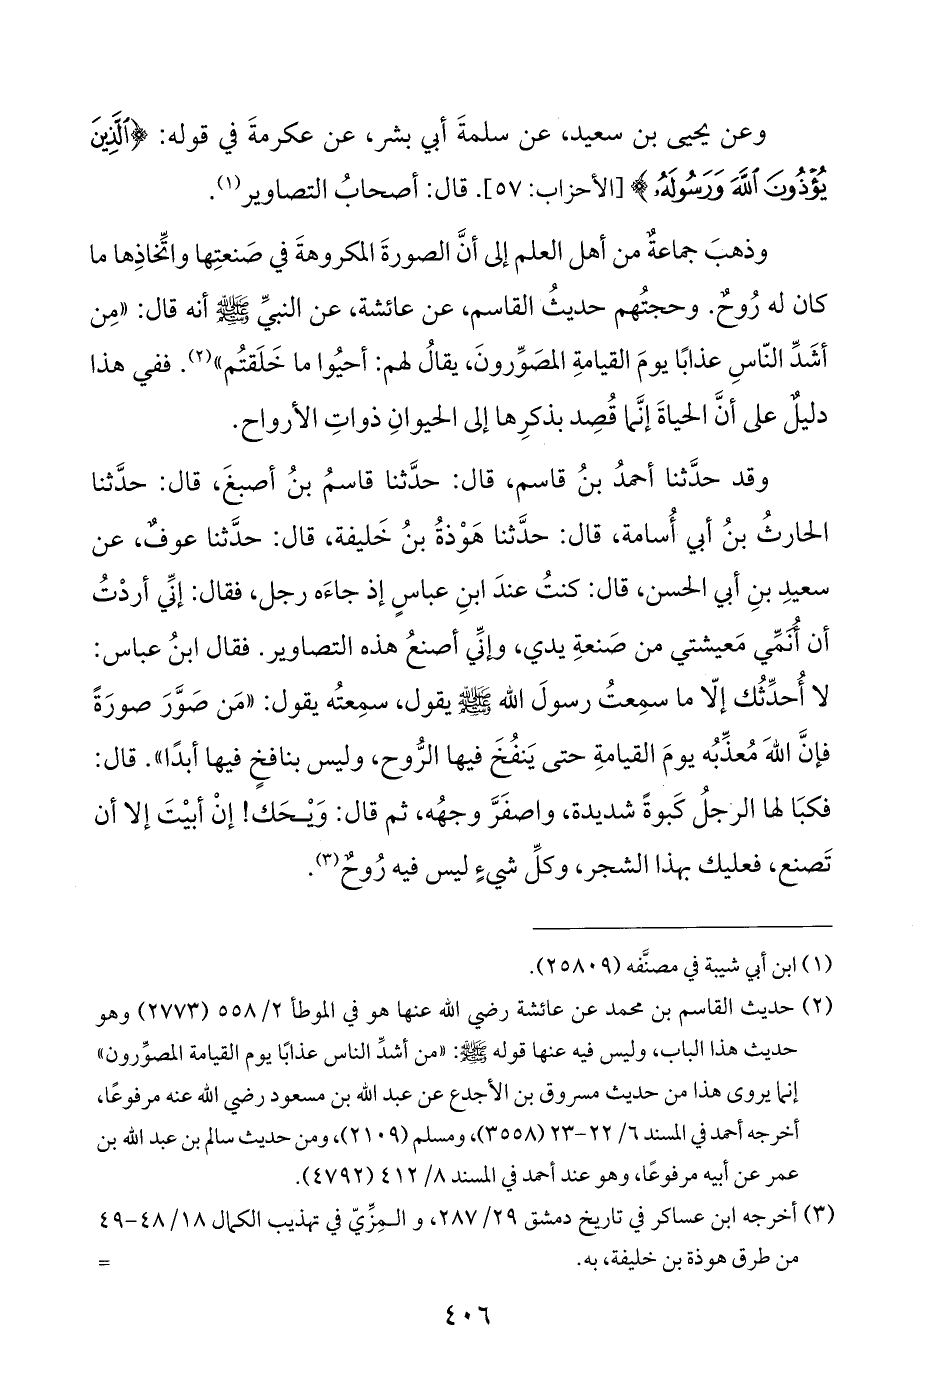 وعن يحيى بن سعيد، عن سلمةَ أبي بشر، عن عكرمةَ في قوله: ﴿ٱلَّذِينَ
يُؤْذُونَ ٱللَّهَ وَرَسُولَهُۥ﴾ [الأحزاب: ٥٧]. قال: أصحابُ التصاوير(١).
وذهبَ جماعةٌ من أهل العلم إلى أنَّ الصورةَ المكروهةَ في صَنعتِها واتِّخاذِها ما
كان له رُوحٌ. وحجتُهم حديثُ القاسم، عن عائشة، عن النبيِّ ﷺ أنه قال: «مِن
أشدِّ النّاسِ عذابًا يومَ القيامةِ المصَوِّرونَ، يقالُ لهم: أحيُوا ما خَلَقتُم»(٢). ففي هذا
دليلٌ على أنَّ الحياةَ إنَّما قُصِد بذكرِها إلى الحيوانِ ذواتِ الأرواح.
وقد حدَّثنا أحمدُ بنُ قاسم، قال: حدَّثنا قاسمُ بنُ أصبغَ، قال: حدَّثنا
الحارثُ بنُ أبي أُسامة، قال: حدَّثنا هَوْذةُ بنُ خَليفة، قال: حدَّثنا عوفٌ، عن
سعيدِ بنِ أبي الحسن، قال: كنتُ عندَ ابنِ عباسٍ إذ جاءَه رجل، فقال: إنِّي أردْتُ
أن أُنَمِّي مَعيشتي من صَنعةِ يدي، وإنِّي أصنعُ هذه التصاوير. فقال ابنُ عباس:
لا أُحدِّثُك إلّا ما سمِعتُ رسولَ الله ﷺ يقول، سمِعتُه يقول: «مَن صَوَّرَ صورَةً
فإنَّ اللهَ مُعذِّبُه يومَ القيامةِ حتى يَنفُخَ فيها الرُّوح، وليس بنافخٍ فيها أبدًا». قال:
فكبَا لها الرجلُ كَبوةً شديدة، واصفَرَّ وجهُه، ثم قال: وَيْحَك! إنْ أبيْتَ إلا أن
تَصنع، فعليك بهذا الشجر، وكلِّ شيءٍ ليس فيه رُوحٌ(٣).
(١) ابن أبي شيبة في مصنَّفه (٢٥٨٠٩).
(٢) حديث القاسم بن محمد عن عائشة رضي الله عنها هو في الموطأ ٢/ ٥٥٨ (٢٧٧٣) وهو
حديث هذا الباب، وليس فيه عنها قوله ﷺ: «من أشدِّ الناس عذابًا يوم القيامة المصوِّرون»
إنما يروى هذا من حديث مسروق بن الأجدع عن عبد الله بن مسعود رضي الله عنه مرفوعًا،
أخرجه أحمد في المسند ٦/ ٢٢-٢٣ (٣٥٥٨)، ومسلم (٢١٠٩)، ومن حديث سالم بن عبد الله بن
عمر عن أبيه مرفوعًا، وهو عند أحمد في المسند ٨/ ٤١٢ (٤٧٩٢).
(٣) أخرجه ابن عساكر في تاريخ دمشق ٢٩/ ٢٨٧، و المِزِّيّ في تهذيب الكمال ١٨/ ٤٨-٤٩
من طرق هوذة بن خليفة، به. =
٤٠٦